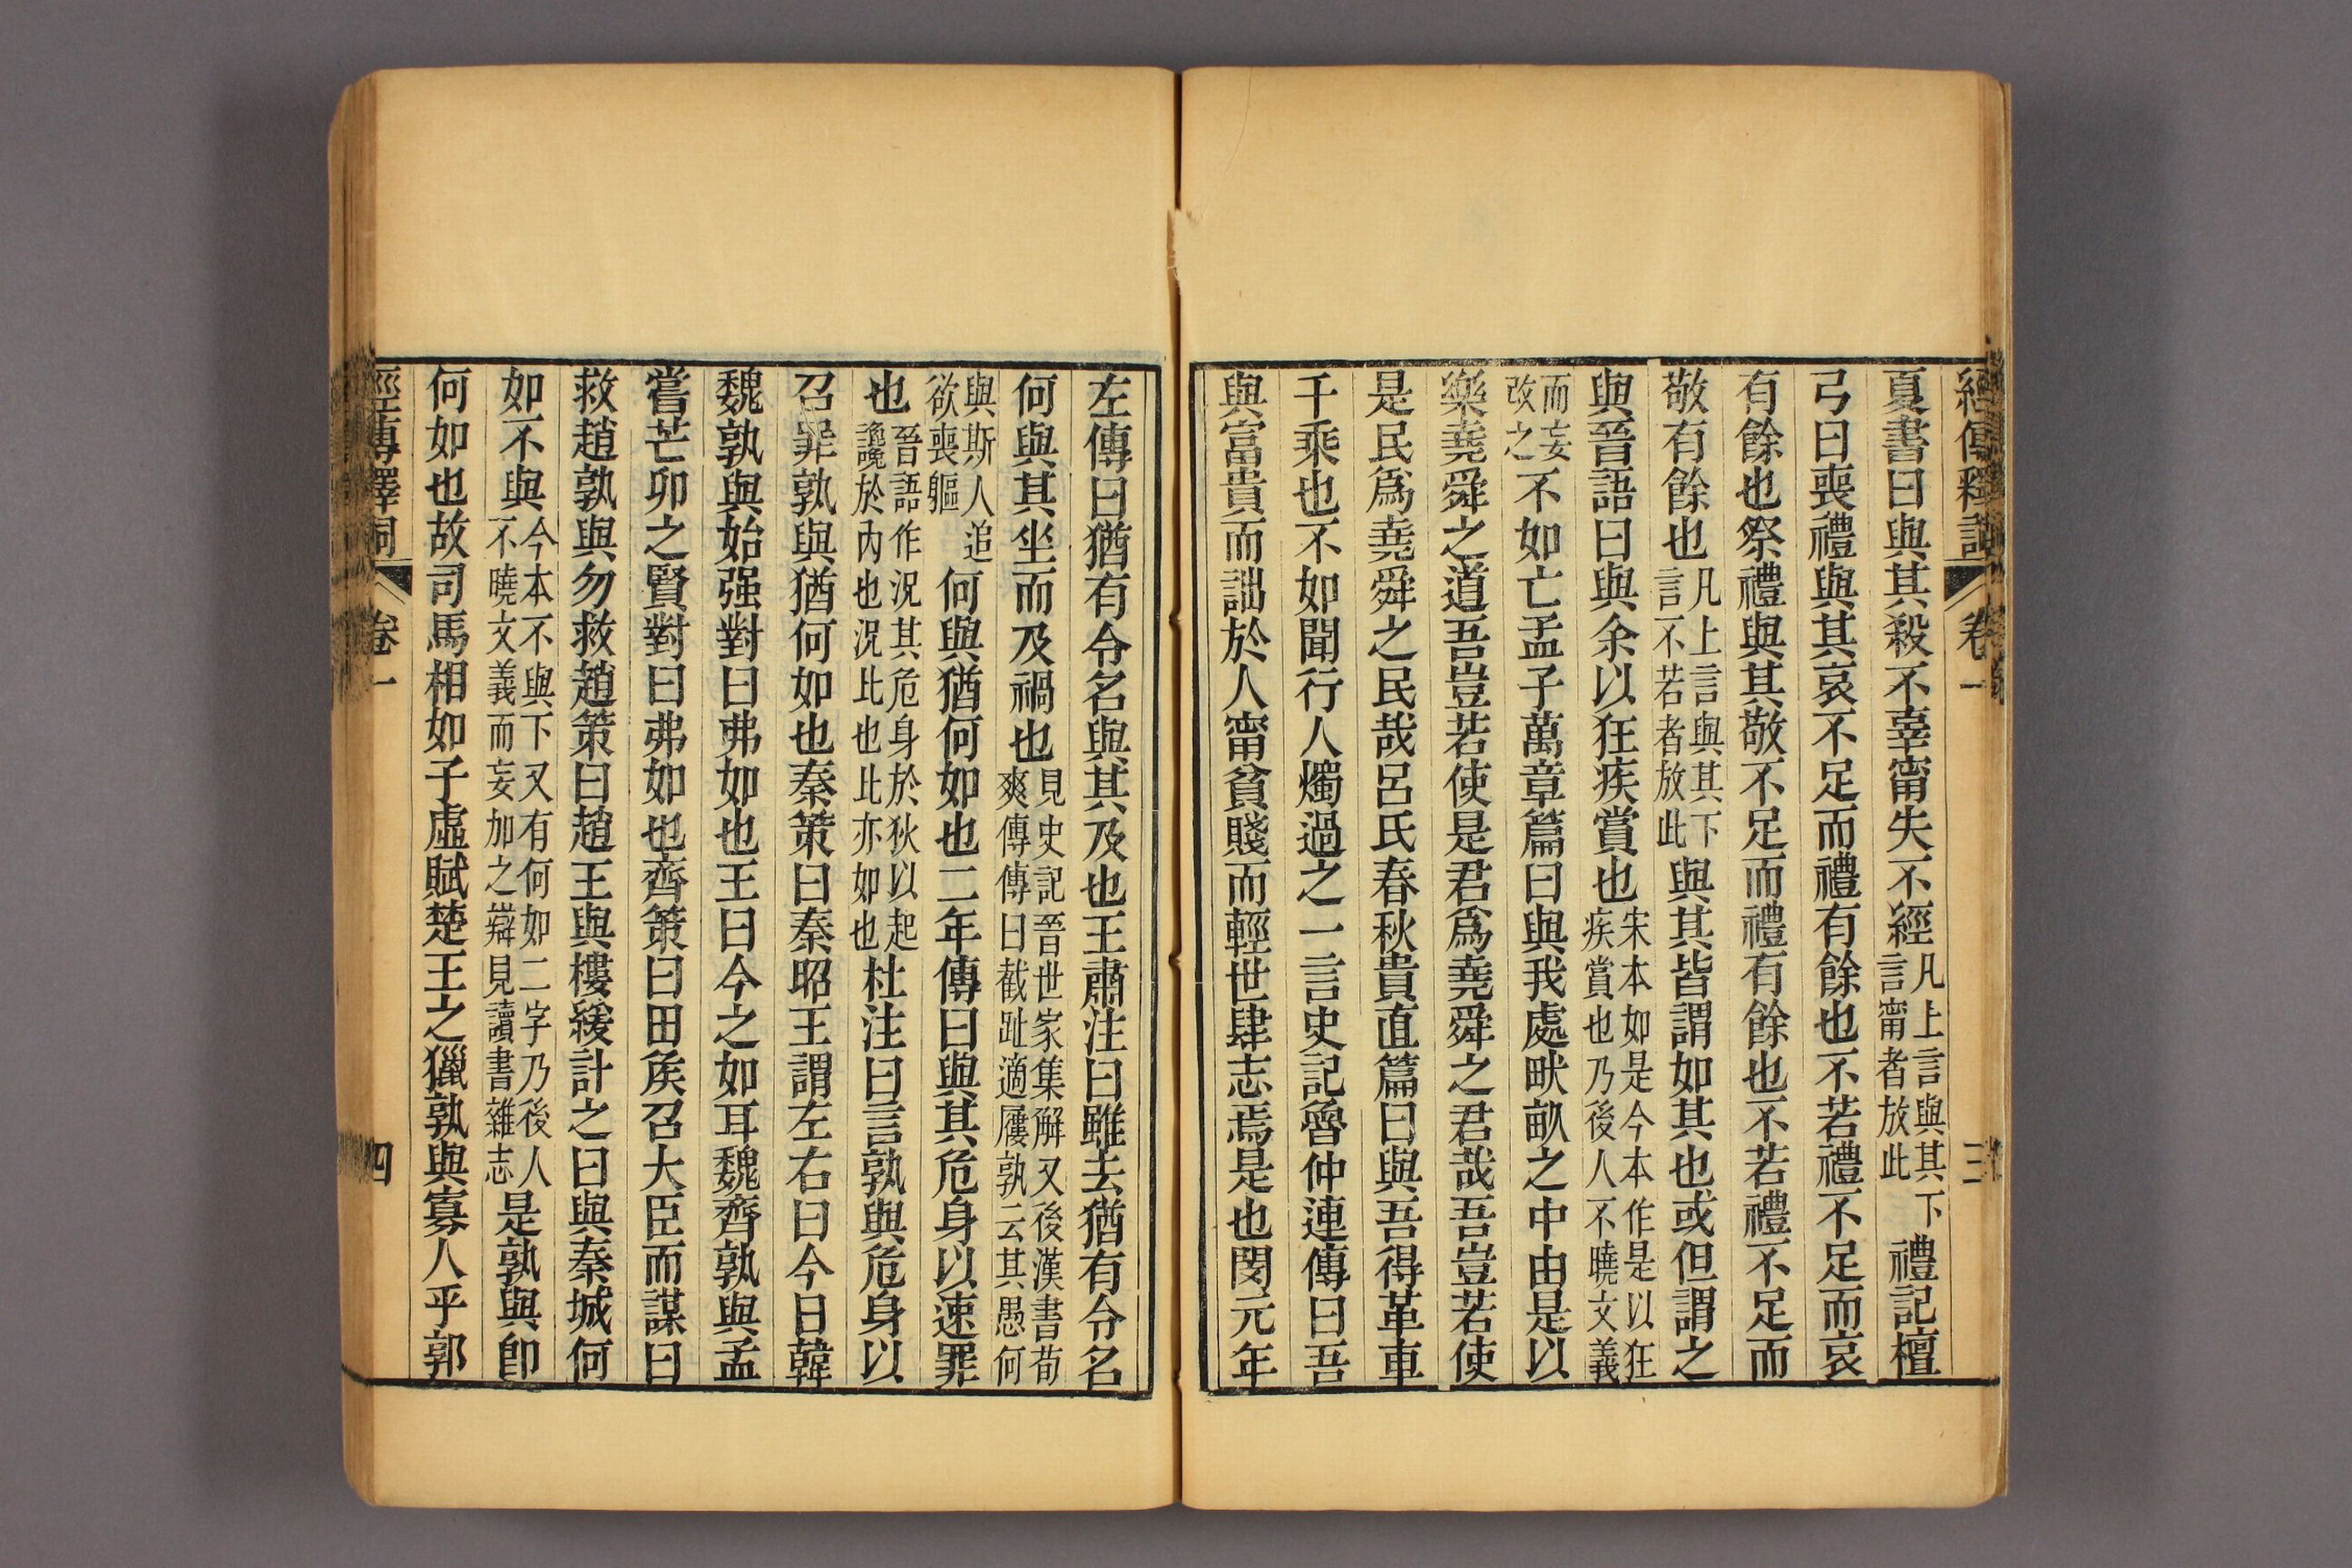 經傳釋詞 卷一 三
夏書曰與其殺不辜甯失不經凡上言與其下言甯者放此禮記檀
弓曰喪禮與其哀不足而禮有餘也不若禮不足而哀
有餘也祭禮與其敬不足而禮有餘也不若禮不足而
敬有餘也凡上言與其下言不若者放此與其皆謂如其也或但謂之
與晉語曰與余以狂疾賞也宋本如是今本作是以狂疾賞也乃後人不曉文義
而妄改之不如亡孟子萬章篇曰與我處畎畝之中由是以
樂堯舜之道吾豈若使是君爲堯舜之君哉吾豈若使
是民爲堯舜之民哉呂氏春秋貴直篇曰與吾得革車
千乘也不如聞行人燭過之一言史記魯仲連傳曰吾
與富貴而詘於人甯貧賤而輕世肆志焉是也閔元年
左傳曰猶有令名與其及也王肅注曰雖去猶有令名
何與其坐而及禍也見史記晉世家集解又後漢書荀爽傳傳曰截趾適屨孰云其愚何
與斯人追欲喪軀何與猶何如也二年傳曰與其危身以速罪
也晉語作況其危身於狄以起讒於內也況比也比亦如也杜注曰言孰與危身以
召罪孰與猶何如也秦策曰秦昭王謂左右曰今日韓
魏孰與始强對曰弗如也王曰今之如耳魏齊孰與孟
嘗芒卯之賢對曰弗如也齊策曰田矦召大臣而謀曰
救趙孰與勿救趙策曰趙王與樓緩計之曰與秦城何
如不與今本不與下又有何如二字乃後人不曉文義而妄加之辯見讀書雜志是孰與卽
何如也故司馬相如子虛賦楚王之獵孰與寡人乎郭
經傳釋詞 卷一 四